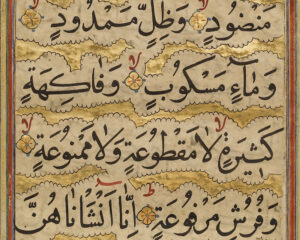 مَنضُودٍ وَظِلٍّ مَمْدُودٍ
وَمَآءٍ مَسْكُوبٍ وَفَاكِهَةٍ
كَثِيرَةٍ لَا مَقْطُوعَةٍ وَلَا مَمْنُوعَةٍ
وَفُرُشٍ مَرْفُوعَةٍ اِنَّا اَنْشَأْنَاهُنَّ